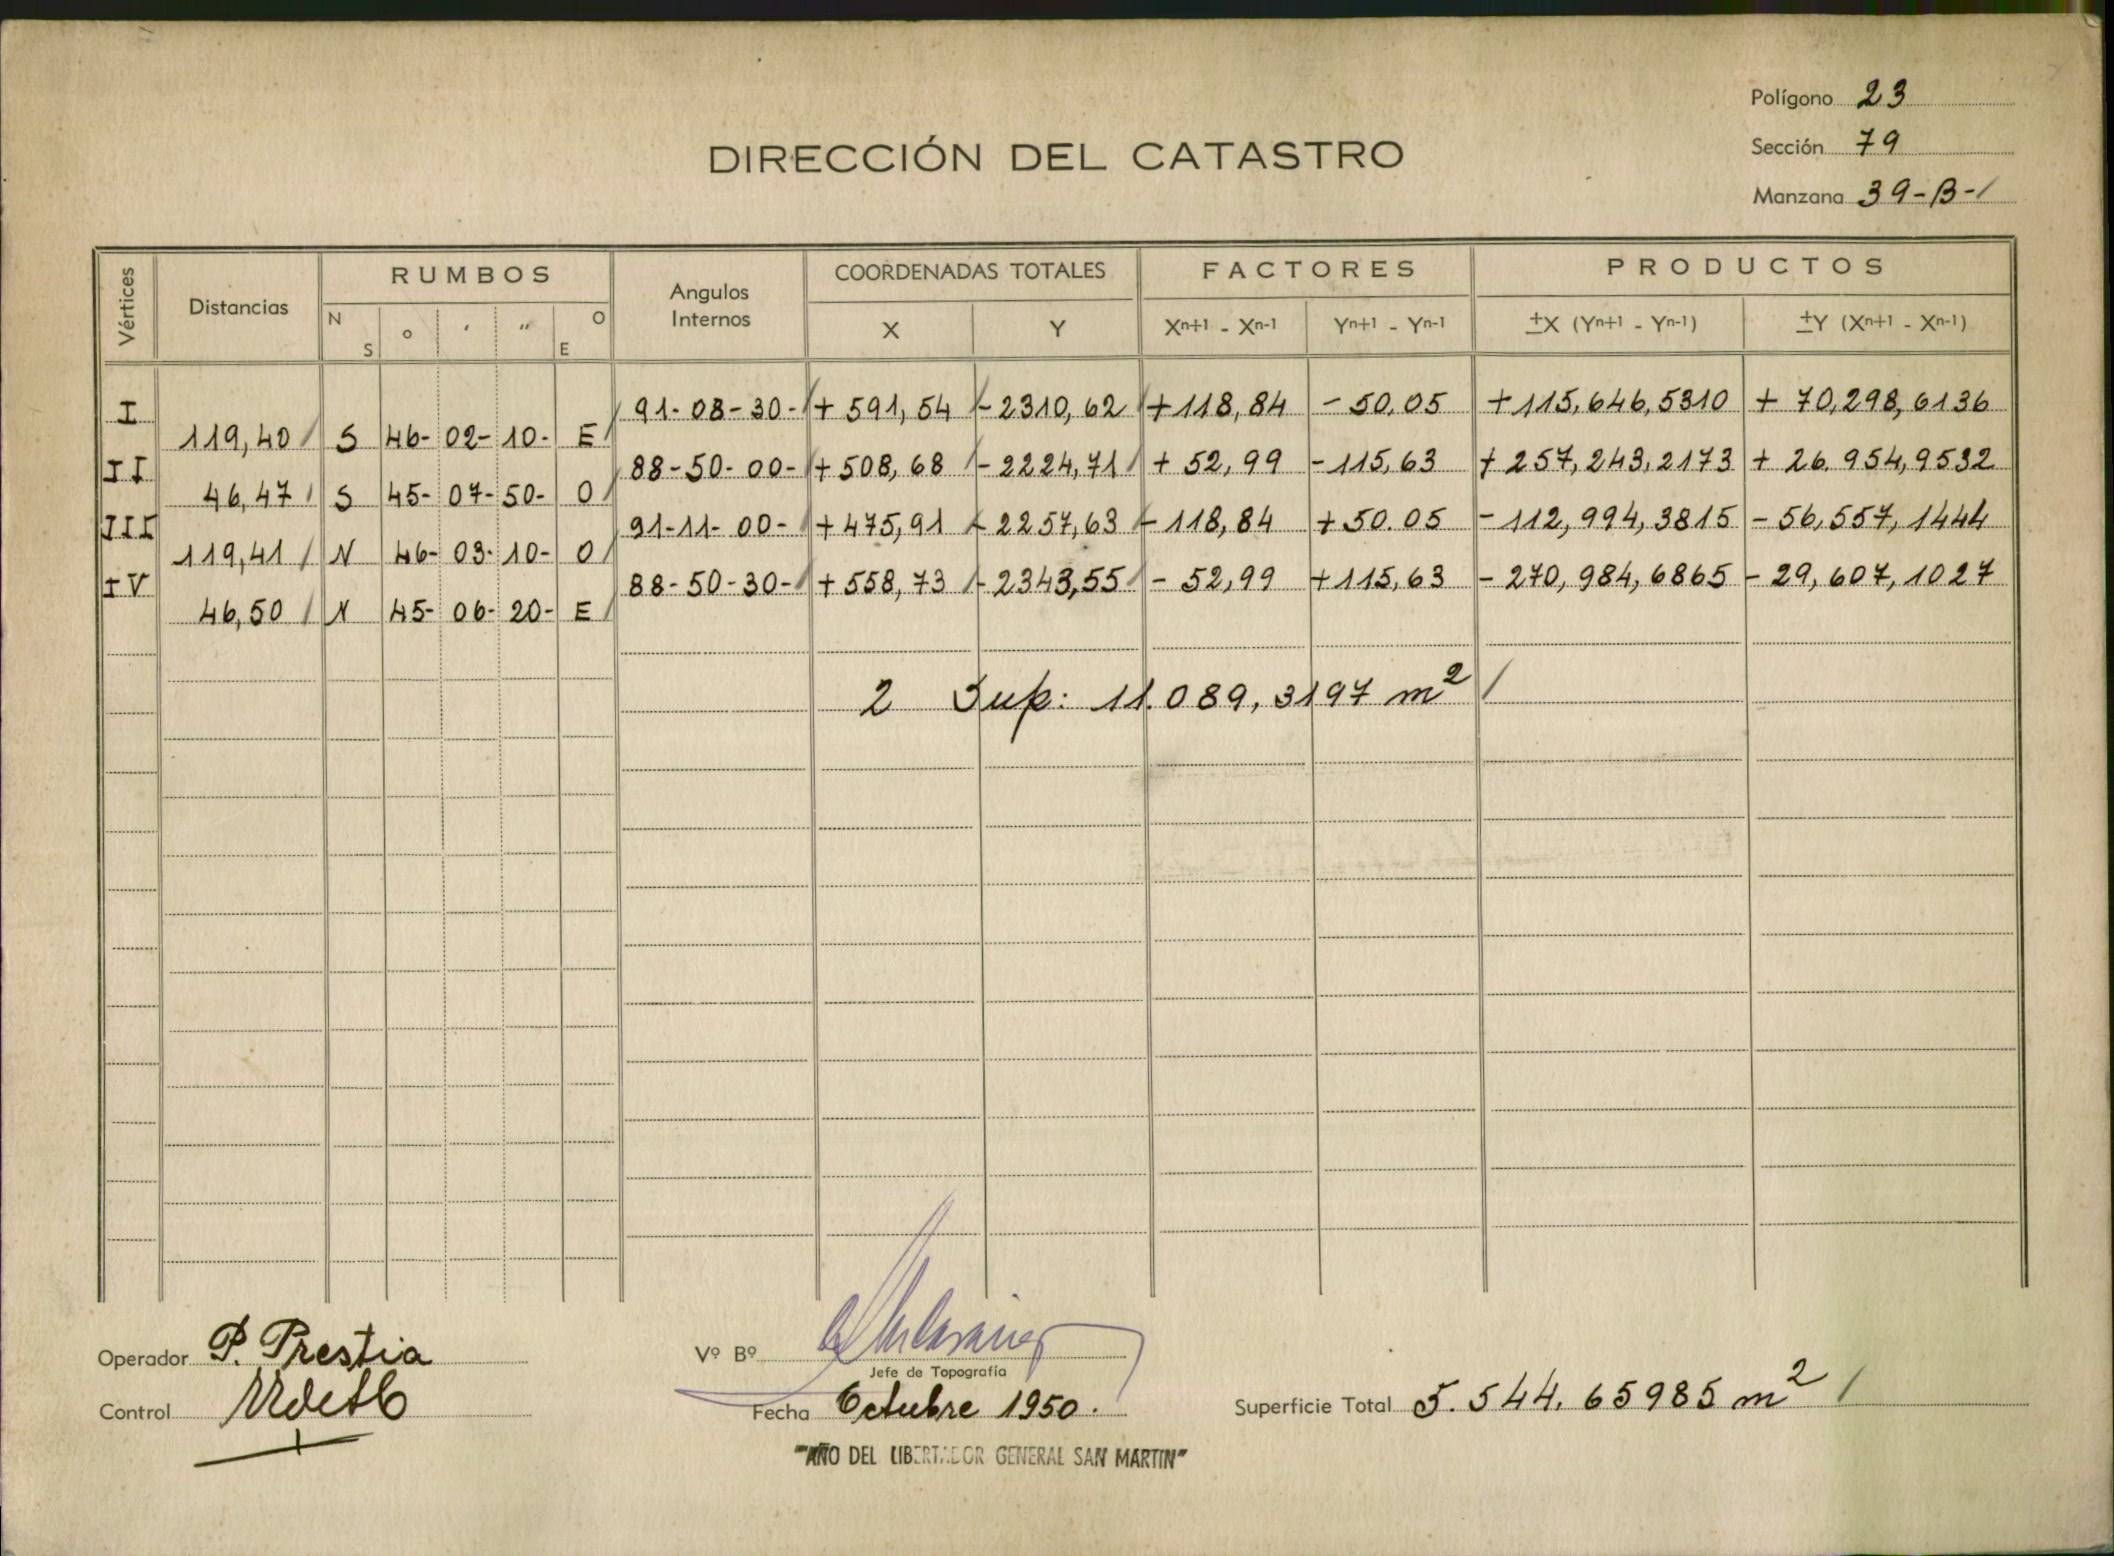 Polígono 23
Sección 79
Manzana 39-B-1
DIRECCIÓN DEL CATASTRO
Vértices Distancias RUMBOS N S o ' " O E Angulos Internos COORDENADAS TOTALES X Y FACTORES Xn+1 - Xn-1 Yn+1 - Yn-1 PRODUCTOS ±X (Yn+1 - Yn-1) ±Y (Xn+1 - Xn-1)
I 91-08-30- + 591,54 - 2310,62 + 118,84 - 50.05 + 115,646,5310 + 70,298,6136
119,40 S 46- 02- 10- E
II 88-50-00- + 508,68 - 2224,71 + 52,99 - 115,63 + 257,243,2173 + 26.954,9532
46,47 S 45- 07- 50- O
III 91-11-00- + 475,91 - 2257,63 - 118,84 + 50.05 - 112,994,3815 - 56,557,1444
119,41 N 46- 03- 10- O
IV 88-50-30- + 558,73 - 2343,55 - 52,99 + 115,63 - 270,984,6865 - 29,607,1027
46,50 N 45- 06- 20- E
2 Sup: 11.089,3197 m2
Operador P. Prestia
Control
Vº Bº
Jefe de Topografía
Fecha Octubre 1950.
Superficie Total 5.544.65985 m2
"AÑO DEL LIBERTADOR GENERAL SAN MARTIN"